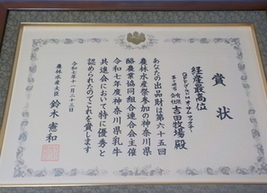 賞状
経産最高位
吉田牧場殿
あなたの出品財は第六十五回
農林水産祭参加の神奈川県
酪農業協同組合連合会主催
令和七年度神奈川県乳牛
共進会において特に優秀と
認められたのでこれを賞します
令和七年十一月二十三日
農林水産大臣 鈴木憲和